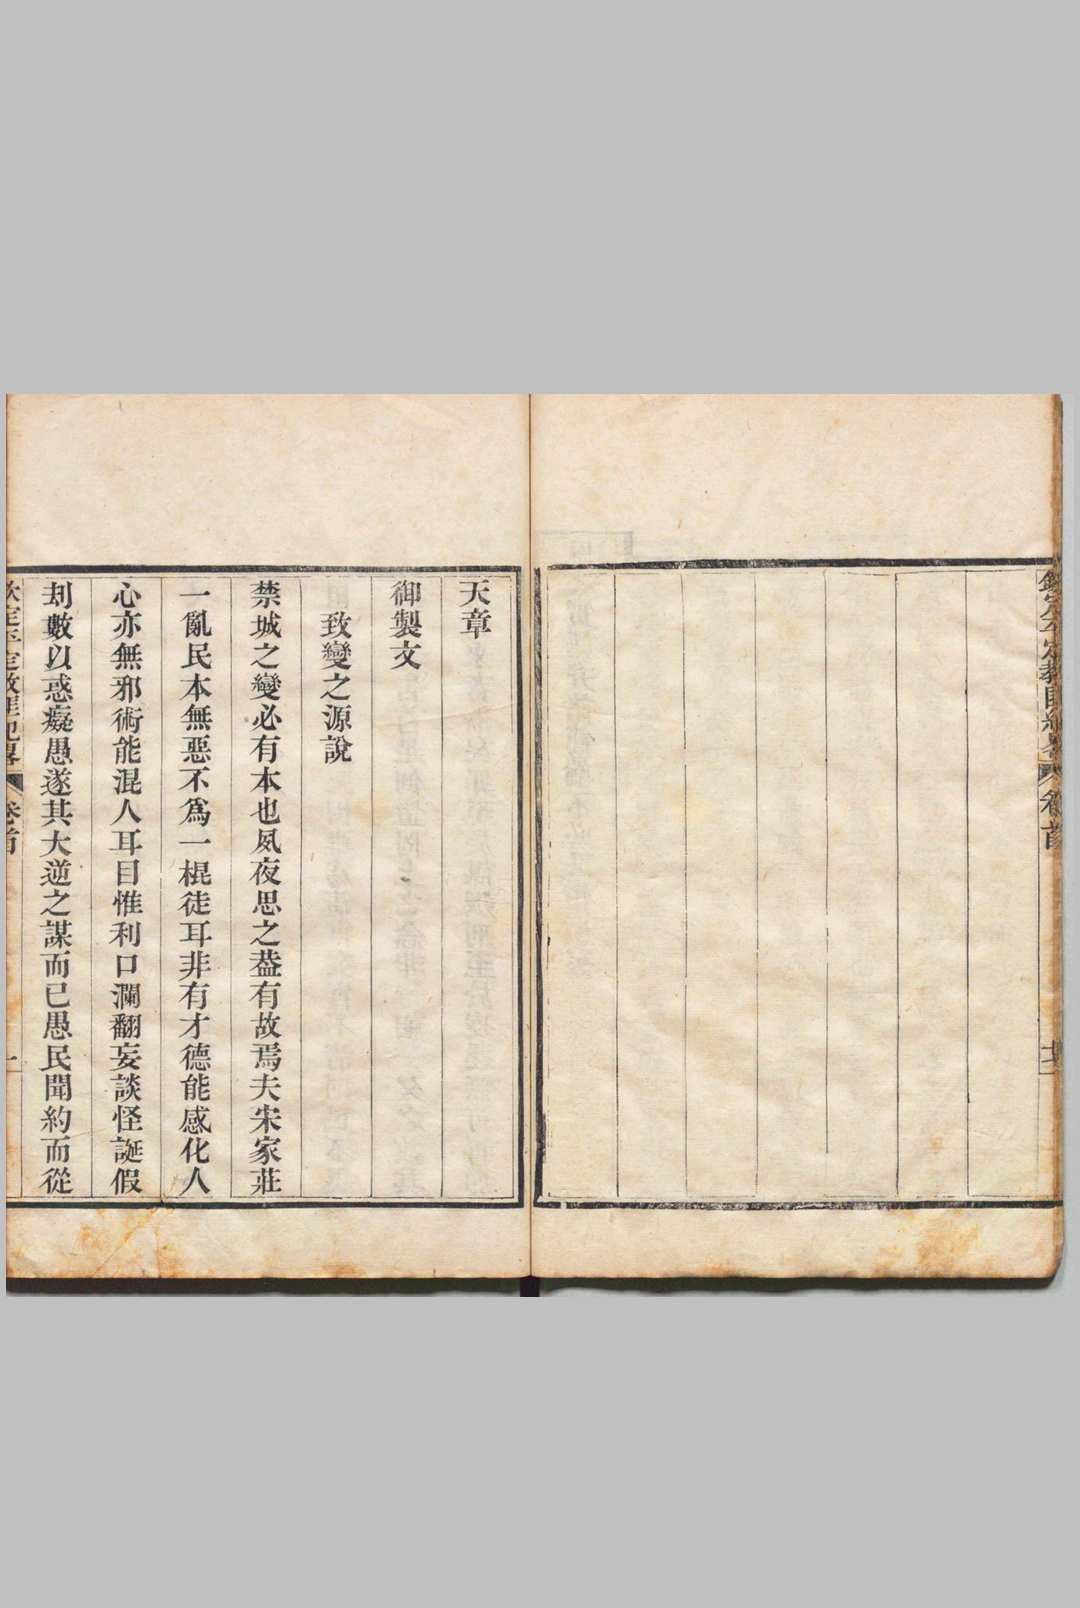 天章
御製文
致變之源說
禁城之變必有本也夙夜思之葢有故焉夫宋家莊
一亂民本無惡不爲一棍徒耳非有才德能感化人
心亦無邪術能混人耳目惟利口瀾翻妄談怪誕假
刦數以惑癡愚遂其大逆之謀而已愚民聞約而從
欽定平定教匪紀畧 卷首 一